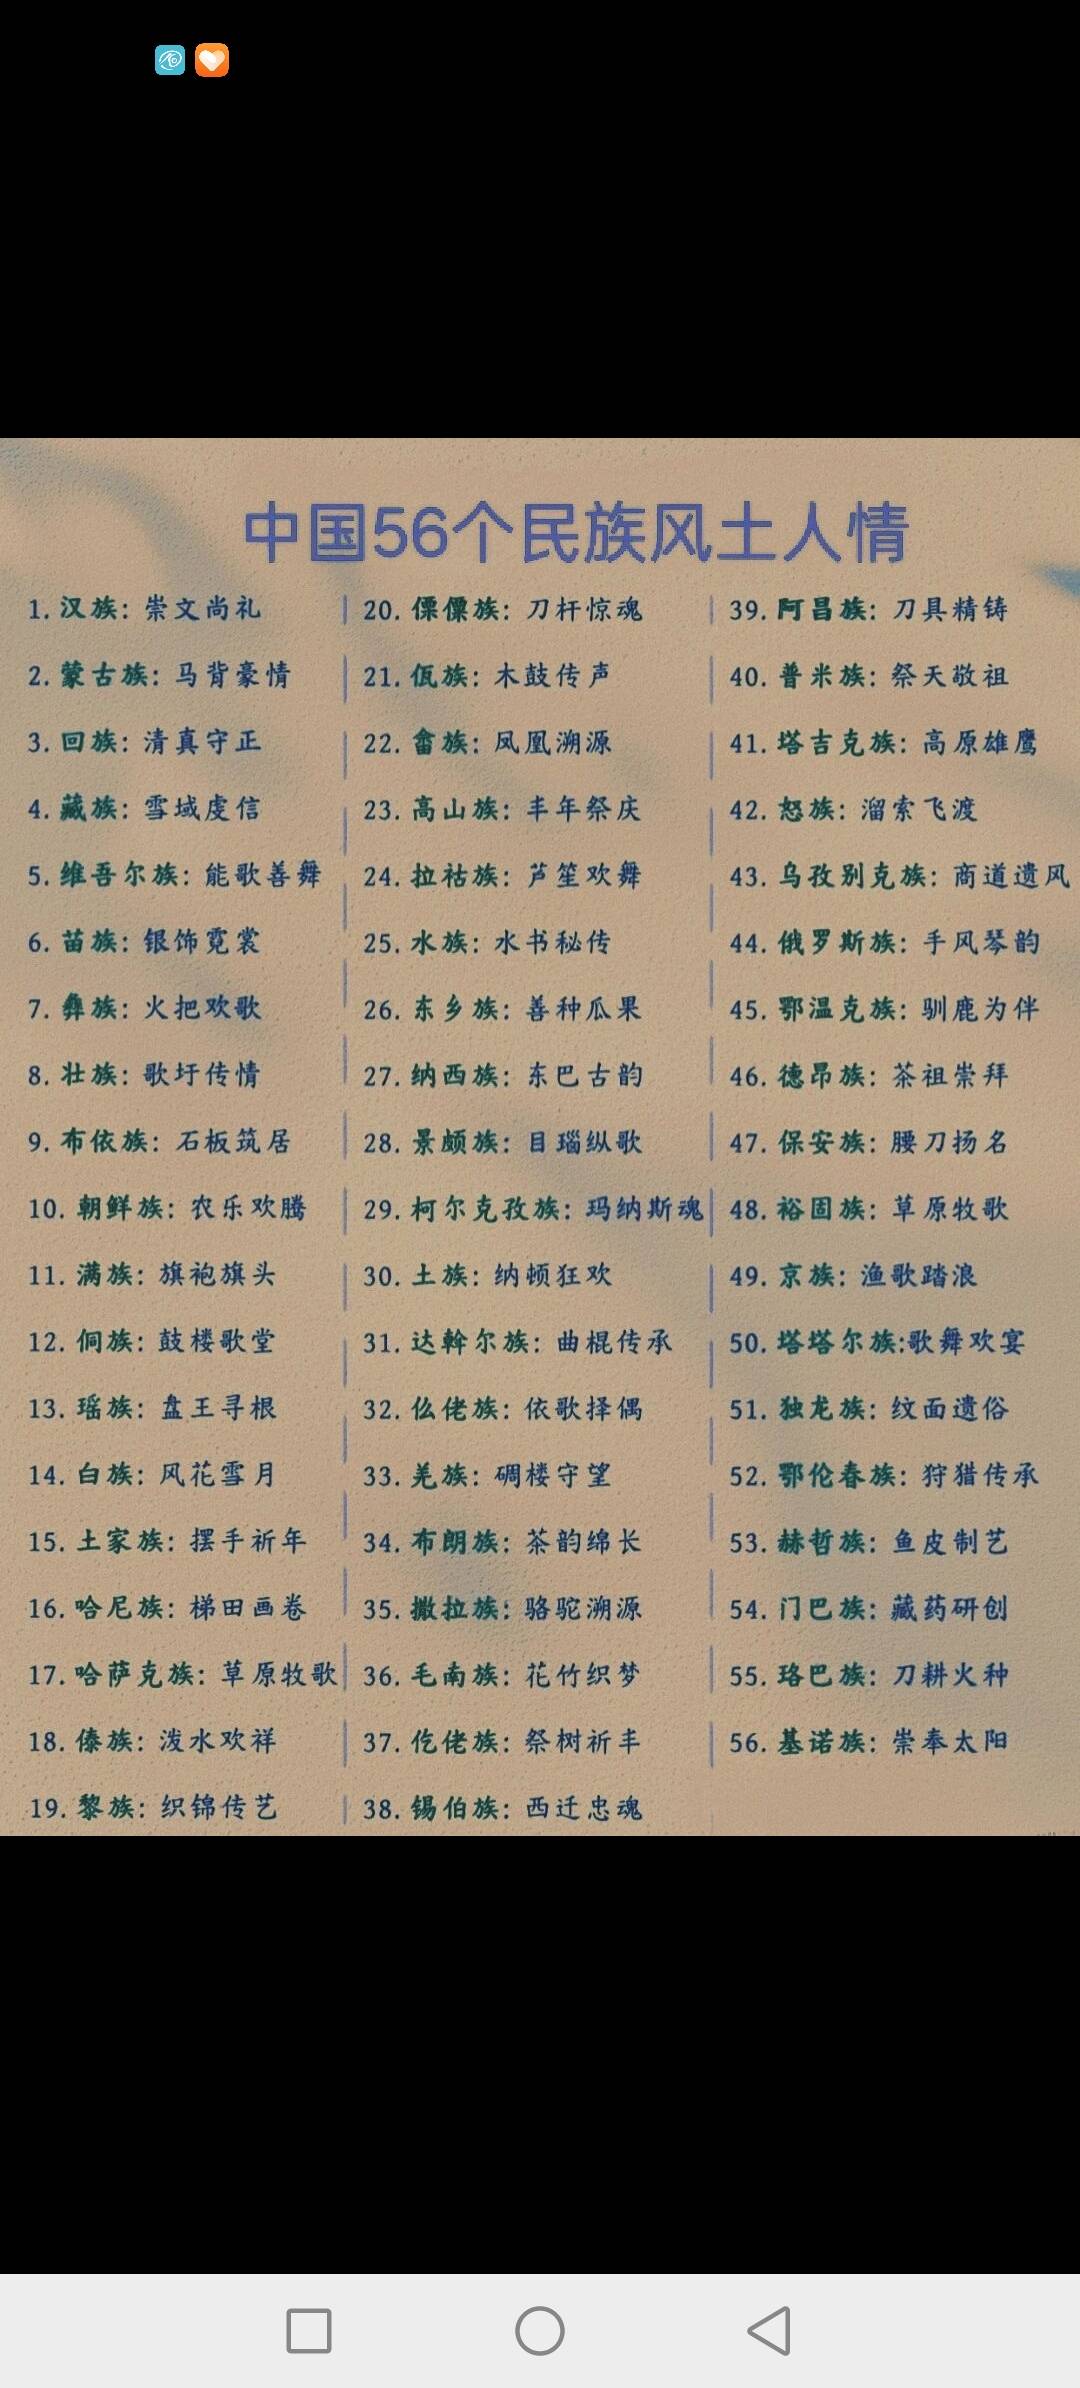 中国56个民族风土人情
1. 汉族: 崇文尚礼
2. 蒙古族: 马背豪情
3. 回族: 清真守正
4. 藏族: 雪域虔信
5. 维吾尔族: 能歌善舞
6. 苗族: 银饰霓裳
7. 彝族: 火把欢歌
8. 壮族: 歌圩传情
9. 布依族: 石板筑居
10. 朝鲜族: 农乐欢腾
11. 满族: 旗袍旗头
12. 侗族: 鼓楼歌堂
13. 瑶族: 盘王寻根
14. 白族: 风花雪月
15. 土家族: 摆手祈年
16. 哈尼族: 梯田画卷
17. 哈萨克族: 草原牧歌
18. 傣族: 泼水欢祥
19. 黎族: 织锦传艺
20. 傈僳族: 刀杆惊魂
21. 佤族: 木鼓传声
22. 畲族: 凤凰溯源
23. 高山族: 丰年祭庆
24. 拉祜族: 芦笙欢舞
25. 水族: 水书秘传
26. 东乡族: 善种瓜果
27. 纳西族: 东巴古韵
28. 景颇族: 目瑙纵歌
29. 柯尔克孜族: 玛纳斯魂
30. 土族: 纳顿狂欢
31. 达斡尔族: 曲棍传承
32. 仫佬族: 依歌择偶
33. 羌族: 碉楼守望
34. 布朗族: 茶韵绵长
35. 撒拉族: 骆驼溯源
36. 毛南族: 花竹织梦
37. 仡佬族: 祭树祈丰
38. 锡伯族: 西迁忠魂
39. 阿昌族: 刀具精铸
40. 普米族: 祭天敬祖
41. 塔吉克族: 高原雄鹰
42. 怒族: 溜索飞渡
43. 乌孜别克族: 商道遗风
44. 俄罗斯族: 手风琴韵
45. 鄂温克族: 驯鹿为伴
46. 德昂族: 茶祖崇拜
47. 保安族: 腰刀扬名
48. 裕固族: 草原牧歌
49. 京族: 渔歌踏浪
50. 塔塔尔族:歌舞欢宴
51. 独龙族: 纹面遗俗
52. 鄂伦春族: 狩猎传承
53. 赫哲族: 鱼皮制艺
54. 门巴族: 藏药研创
55. 珞巴族: 刀耕火种
56. 基诺族: 崇奉太阳